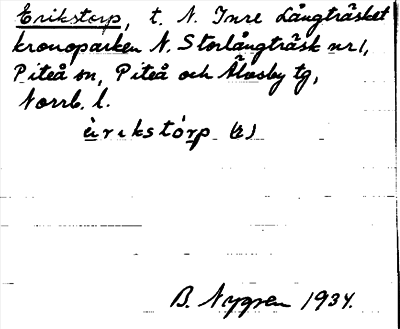 Erikstorp, t. N. Inre Långträsket
kronoparken N. Storlångträsk nr 1,
Piteå sn, Piteå och Älvsby tg,
Norrb. l.
èrikstórp (e)
B. Nygren 1934.